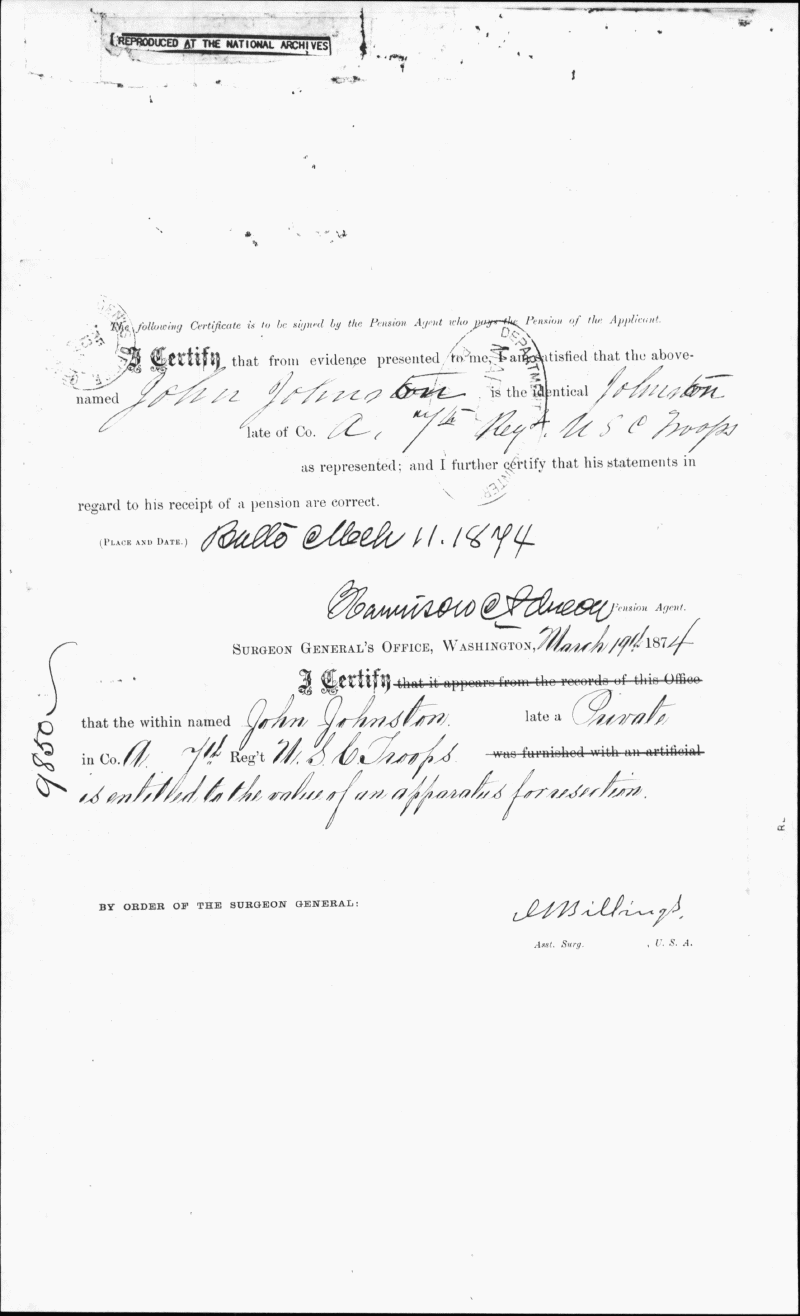 REPRODUCED AT THE NATIONAL ARCHIVES
The following Certificate is to be signed by the Pension Agent who pays the Pension of the Applicant.
I Certify that from evidence presented to me, I am satisfied that the above-
named John Johnston is the identical Johnston
late of Co. A, 7th Regt. U S C Troops
as represented; and I further certify that his statements in
regard to his receipt of a pension are correct.
(PLACE AND DATE.) Balto Mch 11. 1874
Harrison Adreon Pension Agent.
SURGEON GENERAL'S OFFICE, WASHINGTON, March 19th 1874
I Certify that it appears from the records of this Office
that the within named John Johnston. late a Private
in Co. A. 7th Reg't U. S. C. Troops was furnished with an artificial
is entitled to the value of an apparatus for resection.
9850
BY ORDER OF THE SURGEON GENERAL:
Billings.
Asst. Surg. , U. S. A.
DEPARTMENT
MAR